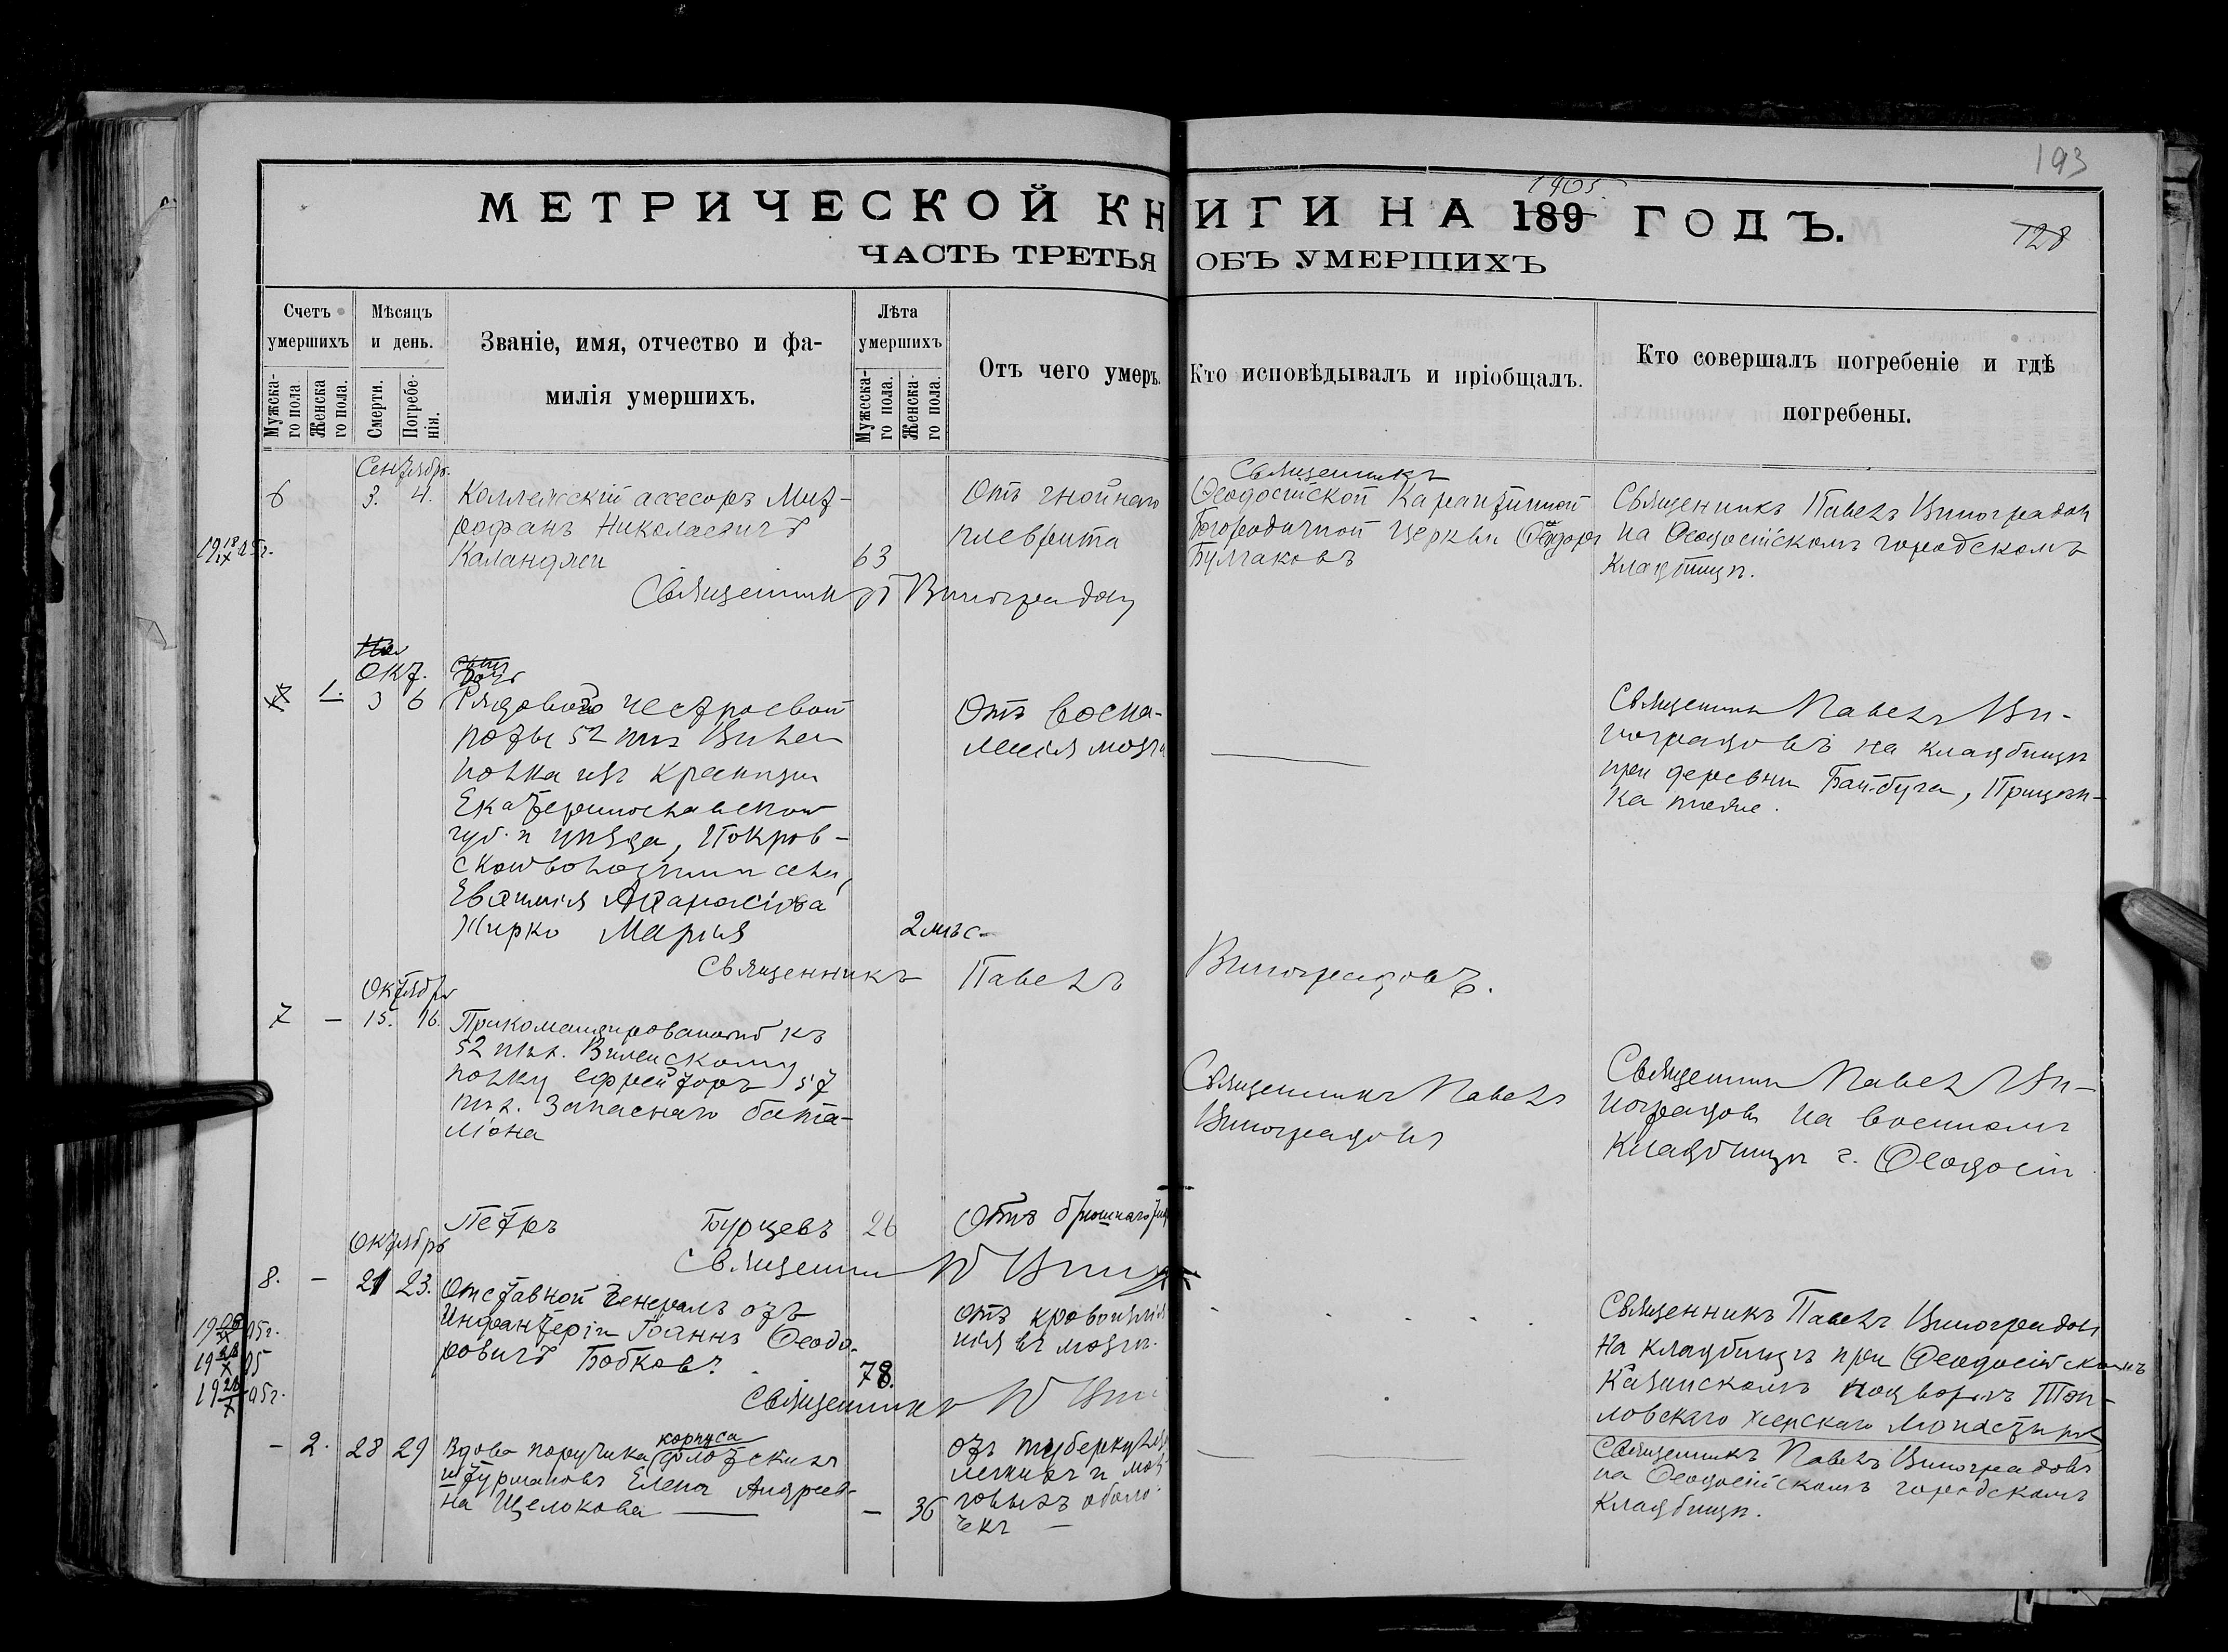 193
МЕТРИЧЕСКОЙ КНИГИ НА 189 ГОДЪ.
1905
128
ЧАСТЬ ТРЕТЬЯ ОБЪ УМЕРШИХЪ
Счетъ умершихъ
Мужска-го пола.
Женска го пола.
Мѣсяцъ и день.
Смерти.
Погребе-нія.
Званіе, имя, отчество и фа-
милія умершихъ.
Лѣта умершихъ
Мужеска-го пола.
Женска-го пола.
Отъ чего умеръ.
Кто исповѣдывалъ и пріобщалъ.
Кто совершалъ погребеніе и гдѣ
погребены.
Сентябрь.
6 3. 4.
Коллежскій ассесоръ Мит-
рофанъ Николаевичъ
Каланджи
63
Отъ гнойнаго
плеврита
Священникъ
Ѳеодосійской Карантинной
Богородичной церкви Ѳеодоръ
Булгаковъ
Священникъ Павелъ Виноградовъ
на Ѳеодосійскомъ городскомъ
кладбищѣ.
Священникъ П Виноградовъ
Окт.
1. 3 6
Дочь
Рядового нестроевой
роты 52 пѣх Вилен
полка изъ крестьянъ
Екатеринославской
губ. и уѣзда, Покров-
ской волости и села,
Евѳимія Аѳанасіева
Жирко Марія
2 мѣс-
Отъ воспа-
ленія мозга
Священникъ Павелъ Ви-
ноградовъ на кладбищѣ
при деревни Бай-буга,
Священникъ Павелъ Виноградовъ.
Октября
7 - 15. 16.
Прикомандированный къ
52 пѣх. Виленскому
полку ефрейторъ 57
пѣх. Запаснаго бата-
ліона
Петръ Бурцевъ 26
Отъ брюшного
Священникъ Павелъ
Виноградовъ
Священникъ Павелъ Ви-
ноградовъ на военномъ
кладбищѣ г. Ѳеодосіи
Священникъ П
Октябрь
8. - 21 23.
Отставной Генералъ отъ
Инфантеріи Іоаннъ Ѳеодо-
ровичъ Бобковъ.
78.
Отъ кровоизлія
нія въ мозгъ.
Священникъ Павелъ Виноградовъ
на кладбищѣ при Ѳеодосійскомъ
Казанскомъ подворьѣ Топ-
ловскаго женскаго монастыря
Священникъ П
- 2. 28 29
Вдова поручика корпуса флотскихъ
штурмановъ Елена Андреев-
на Щелокова
- 36
отъ туберкулеза
легкихъ и моз
говыхъ оболо-
чекъ
Священникъ Павелъ Виноградовъ
на Ѳеодосійскомъ городскомъ
кладбищѣ.